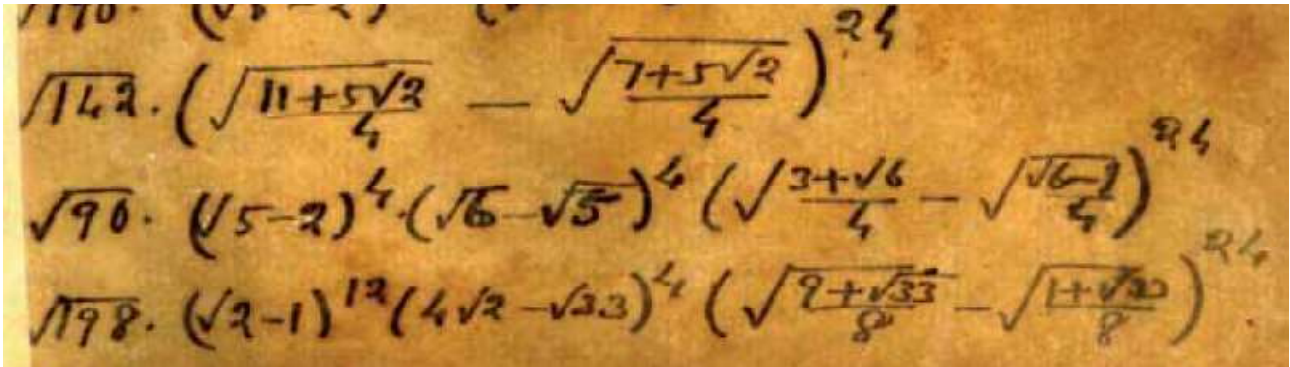 √142. (√((11+5√2)/4) − √((7+5√2)/4))^24
√90. (√5−2)^4·(√6−√5)^4 (√((3+√6)/4) − √((√6−1)/4))^24
√198. (√2−1)^12 (4√2−√33)^4 (√((9+√33)/8) − √((1+√33)/8))^24.